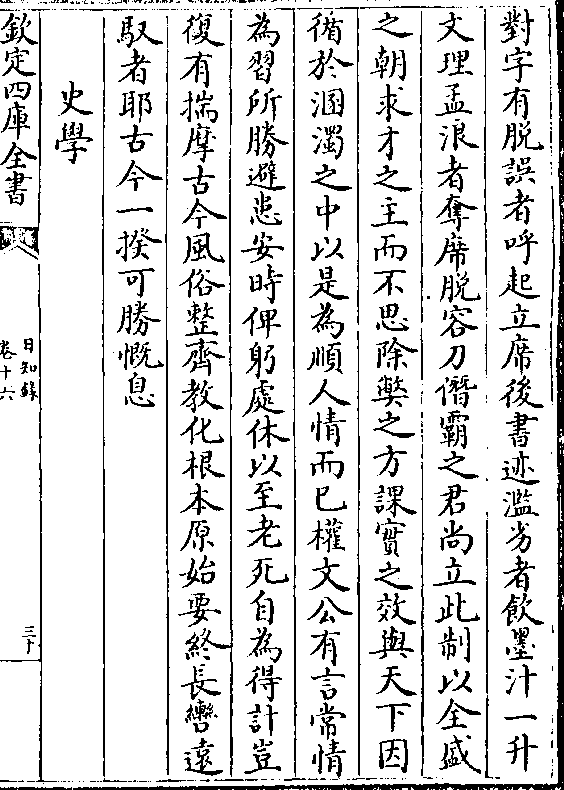 對字有脱誤者呼起立席後書迹濫劣者飲墨汁一升
文理孟浪者奪席脱容刀僭霸之君尚立此制以全盛
之朝求才之主而不思除獘之方課實之效與天下因
循於溷濁之中以是為順人情而已權文公有言常情
為習所勝避患安時俾躬處休以至老死自為得計豈
復有揣摩古今風俗整齊教化根本原始要終長轡逺
馭者耶古今一揆可勝慨息
史學
欽定四庫全書
日知錄
卷十六
三下